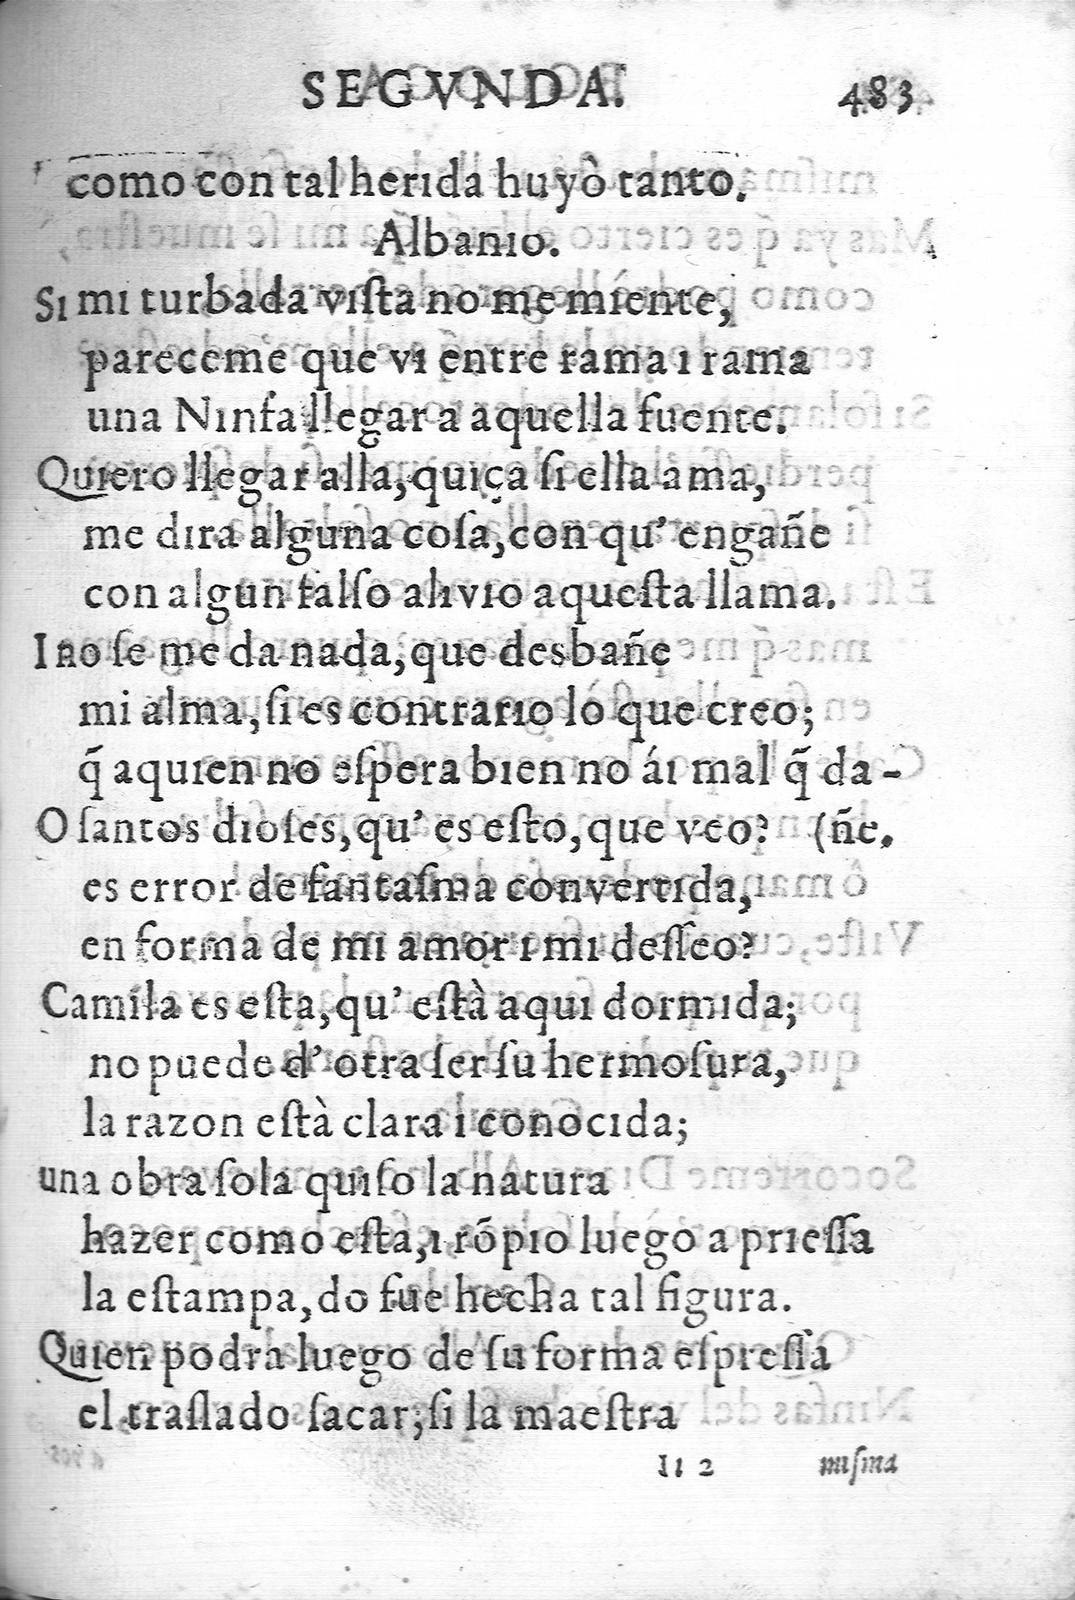 SEGVNDA. 483
como con tal herida huyò tanto.
Albanio.
Si mi turbada viſta no me miente,
pareceme que vi entre rama i rama
una Ninfa llegar a aquella fuente.
Quiero llegar alla, quiça ſi ella ama,
me dira alguna coſa, con qu' engañe
con algun falſo alivio aqueſta llama.
I no ſe me da nada, que desbañe
mi alma, ſi es contrario lo que creo;
q̃ aquien no eſpera bien no ái mal q̃ da-
O ſantos dioſes, qu' es eſto, que veo? (ñe.
es error de fantaſma convertida,
en forma de mi amor i mi deſſeo?
Camila es eſta, qu' eſtà aqui dormida;
no puede d' otra ſer ſu hermoſura,
la razon eſtà clara i conocida;
una obra ſola quiſo la natura
hazer como eſta, i rõpio luego a prieſſa
la eſtampa, do fue hecha tal figura.
Quien podra luego de ſu forma eſpreſſa
el traſlado ſacar; ſi la maeſtra
Ii 2 miſma